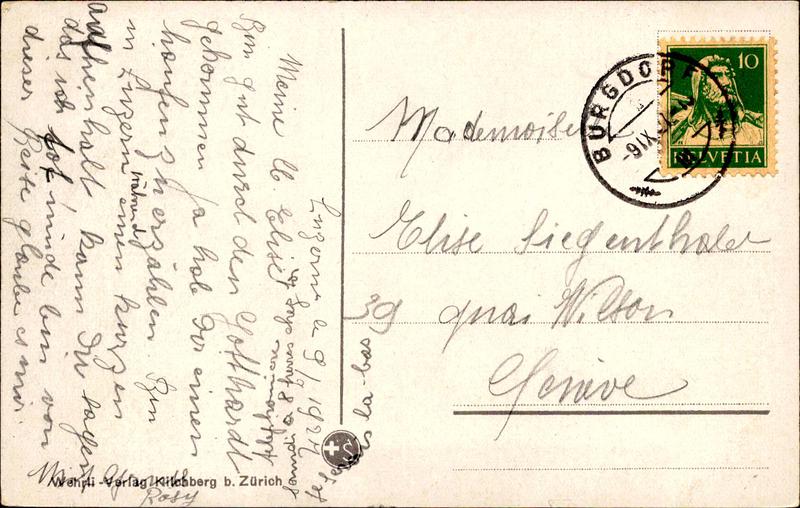 Luzern le 9/9 1924
Meine lb. Elise!
Bin gut durch den Gotthardt
gekommen ja hab Dir einen
haufen zu erzählen. Bin
in Luzern während einen kurzen
aufhenhalt kann Dir sagen
das ich tot müde bin von
dieser Reise glaube es mir.
Rosy
samedi a 8 heures
serais la-bas
Mademoise
Elise Siegenthaler
39 quai Wilson
Genève
BURGDORF
9 IX
10
HELVETIA
Wehrli-Verlag Kilchberg b. Zürich